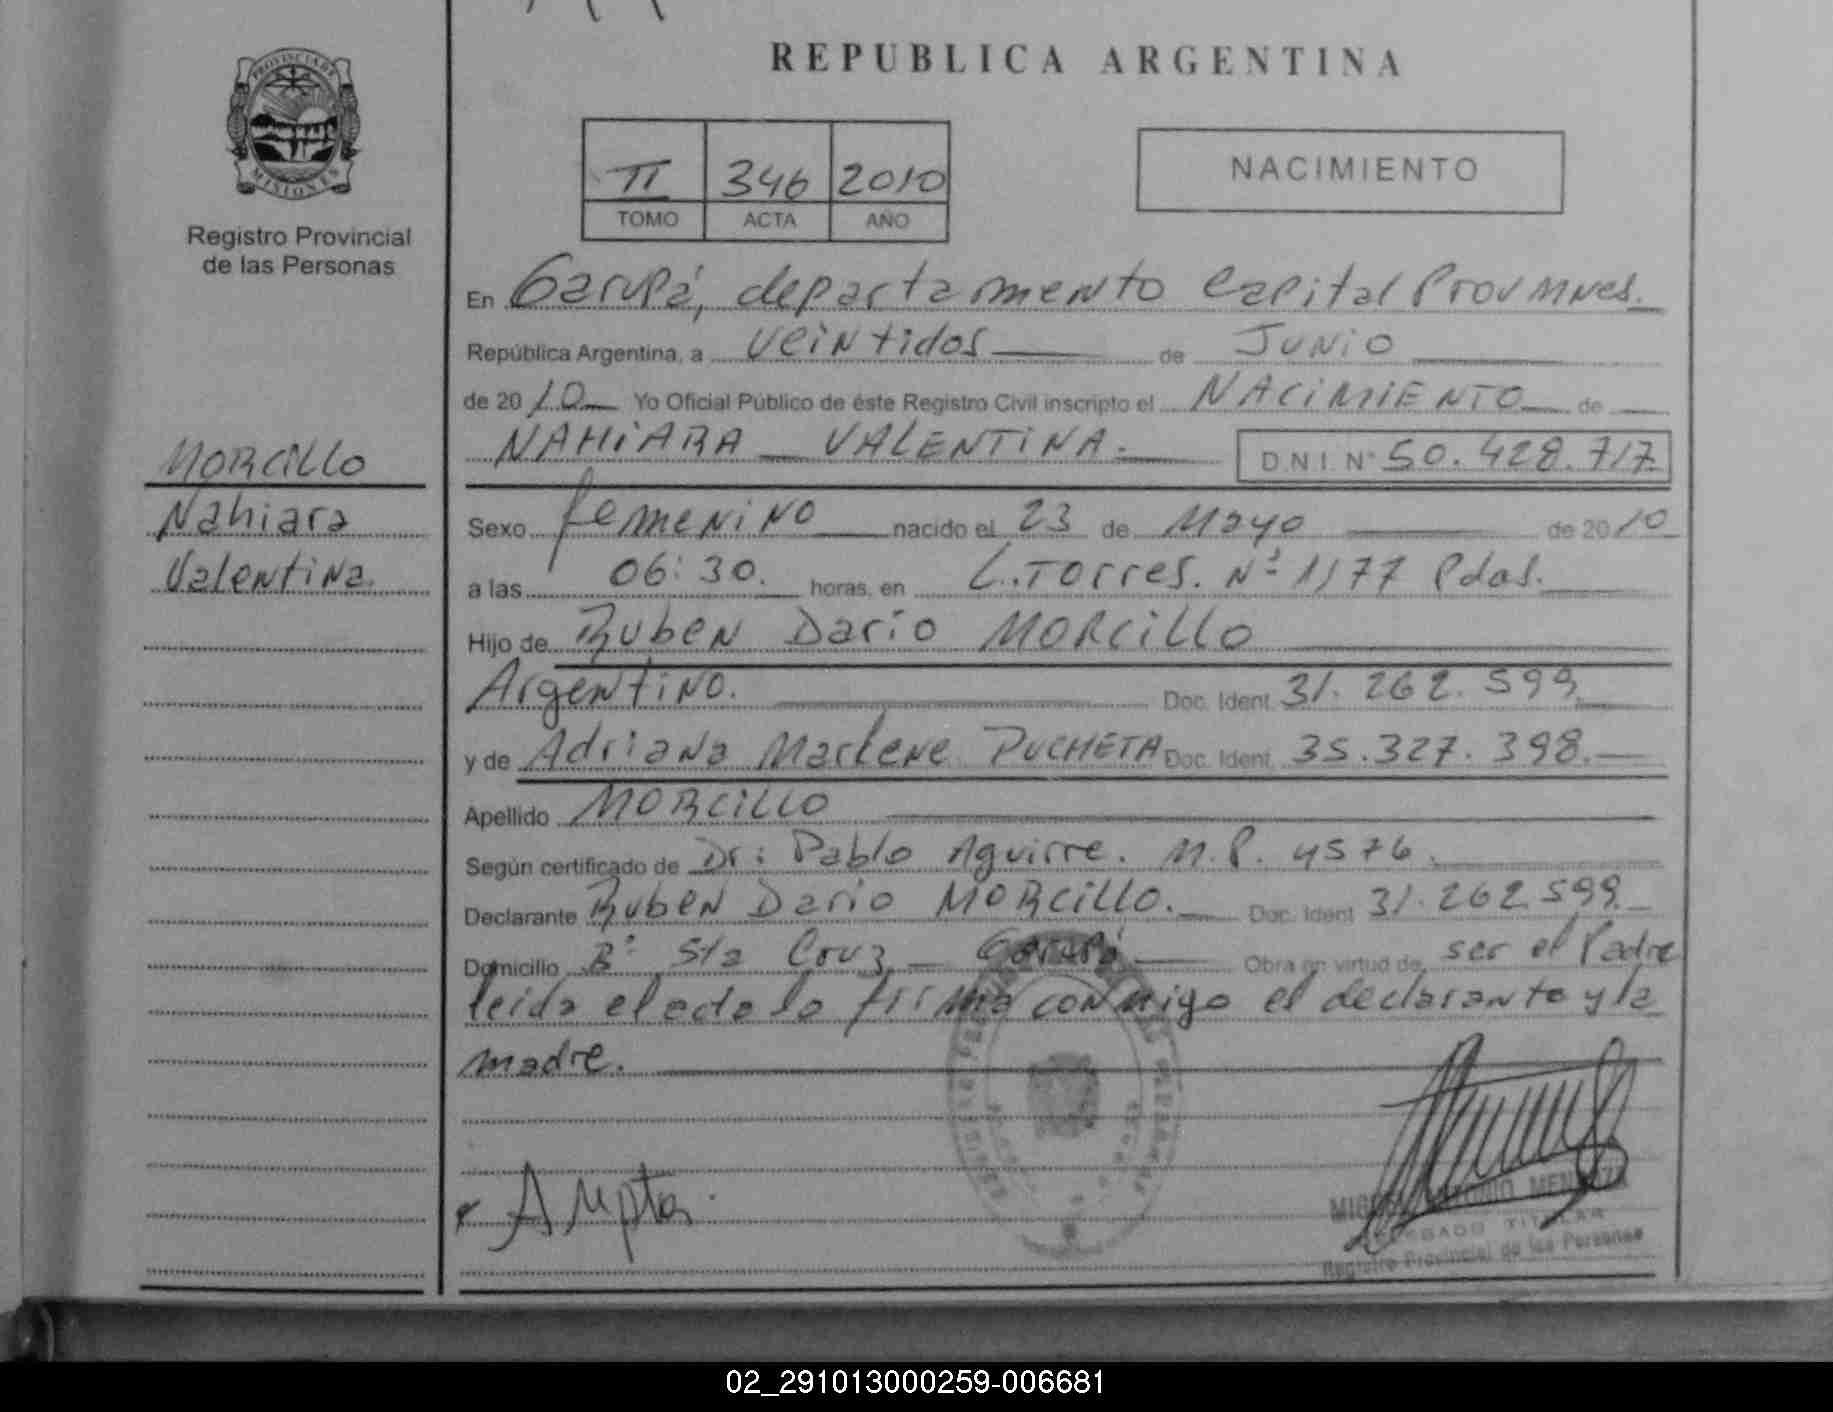 REPUBLICA ARGENTINA
PROVINCIA DE
MISIONES
Registro Provincial
de las Personas
II 346 2010
TOMO ACTA AÑO
NACIMIENTO
En Garupá, departamento Capital Prov Mnes.
República Argentina, a veintidos de Junio
de 2010 Yo Oficial Público de éste Registro Civil inscripto el NACIMIENTO de
NAHIARA VALENTINA. D.N.I. Nº 50.428.717
MORCILLO
Nahiara
Valentina.
Sexo femenino nacido el 23 de Mayo de 2010
a las 06:30. horas, en L. Torres. Nº 1177 Pdas.
Hijo de Ruben Dario MORCILLO
Argentino. Doc. Ident. 31.262.599
y de Adriana Marlene PUCHETA Doc. Ident. 35.327.398.
Apellido MORCILLO
Según certificado de Dr: Pablo Aguirre. M.P. 4576.
Declarante Ruben Dario MORCILLO. Doc. Ident. 31.262.599.
Domicilio Bº Sta Cruz Garupá Obra en virtud de ser el Padre
leida el acta la firma conmigo el declarante y la
madre.
MIGUEL ANTONIO MENDOZA
DELEGADO TITULAR
Registro Provincial de las Personas
02_291013000259-006681